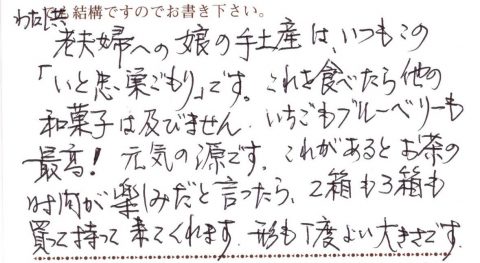 でも結構ですのでお書き下さい。
わたし共
老夫婦への娘の手土産は、いつもこの
「いと忠 巣ごもり」です。これを食べたら他の
和菓子は及びません。いちごもブルーベリーも
最高！ 元気の源です。これがあるとお茶の
時間が楽しみだと言ったら、2箱も3箱も
買って持って来てくれます。形も丁度よい大きさです。